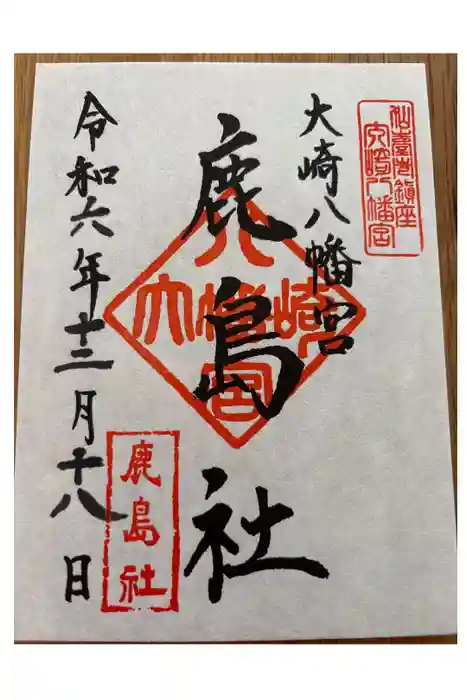 仙臺市鎮座
大崎八幡宮
大崎八幡宮
鹿島社
大崎八幡宮
鹿島社
令和六年十二月十八日